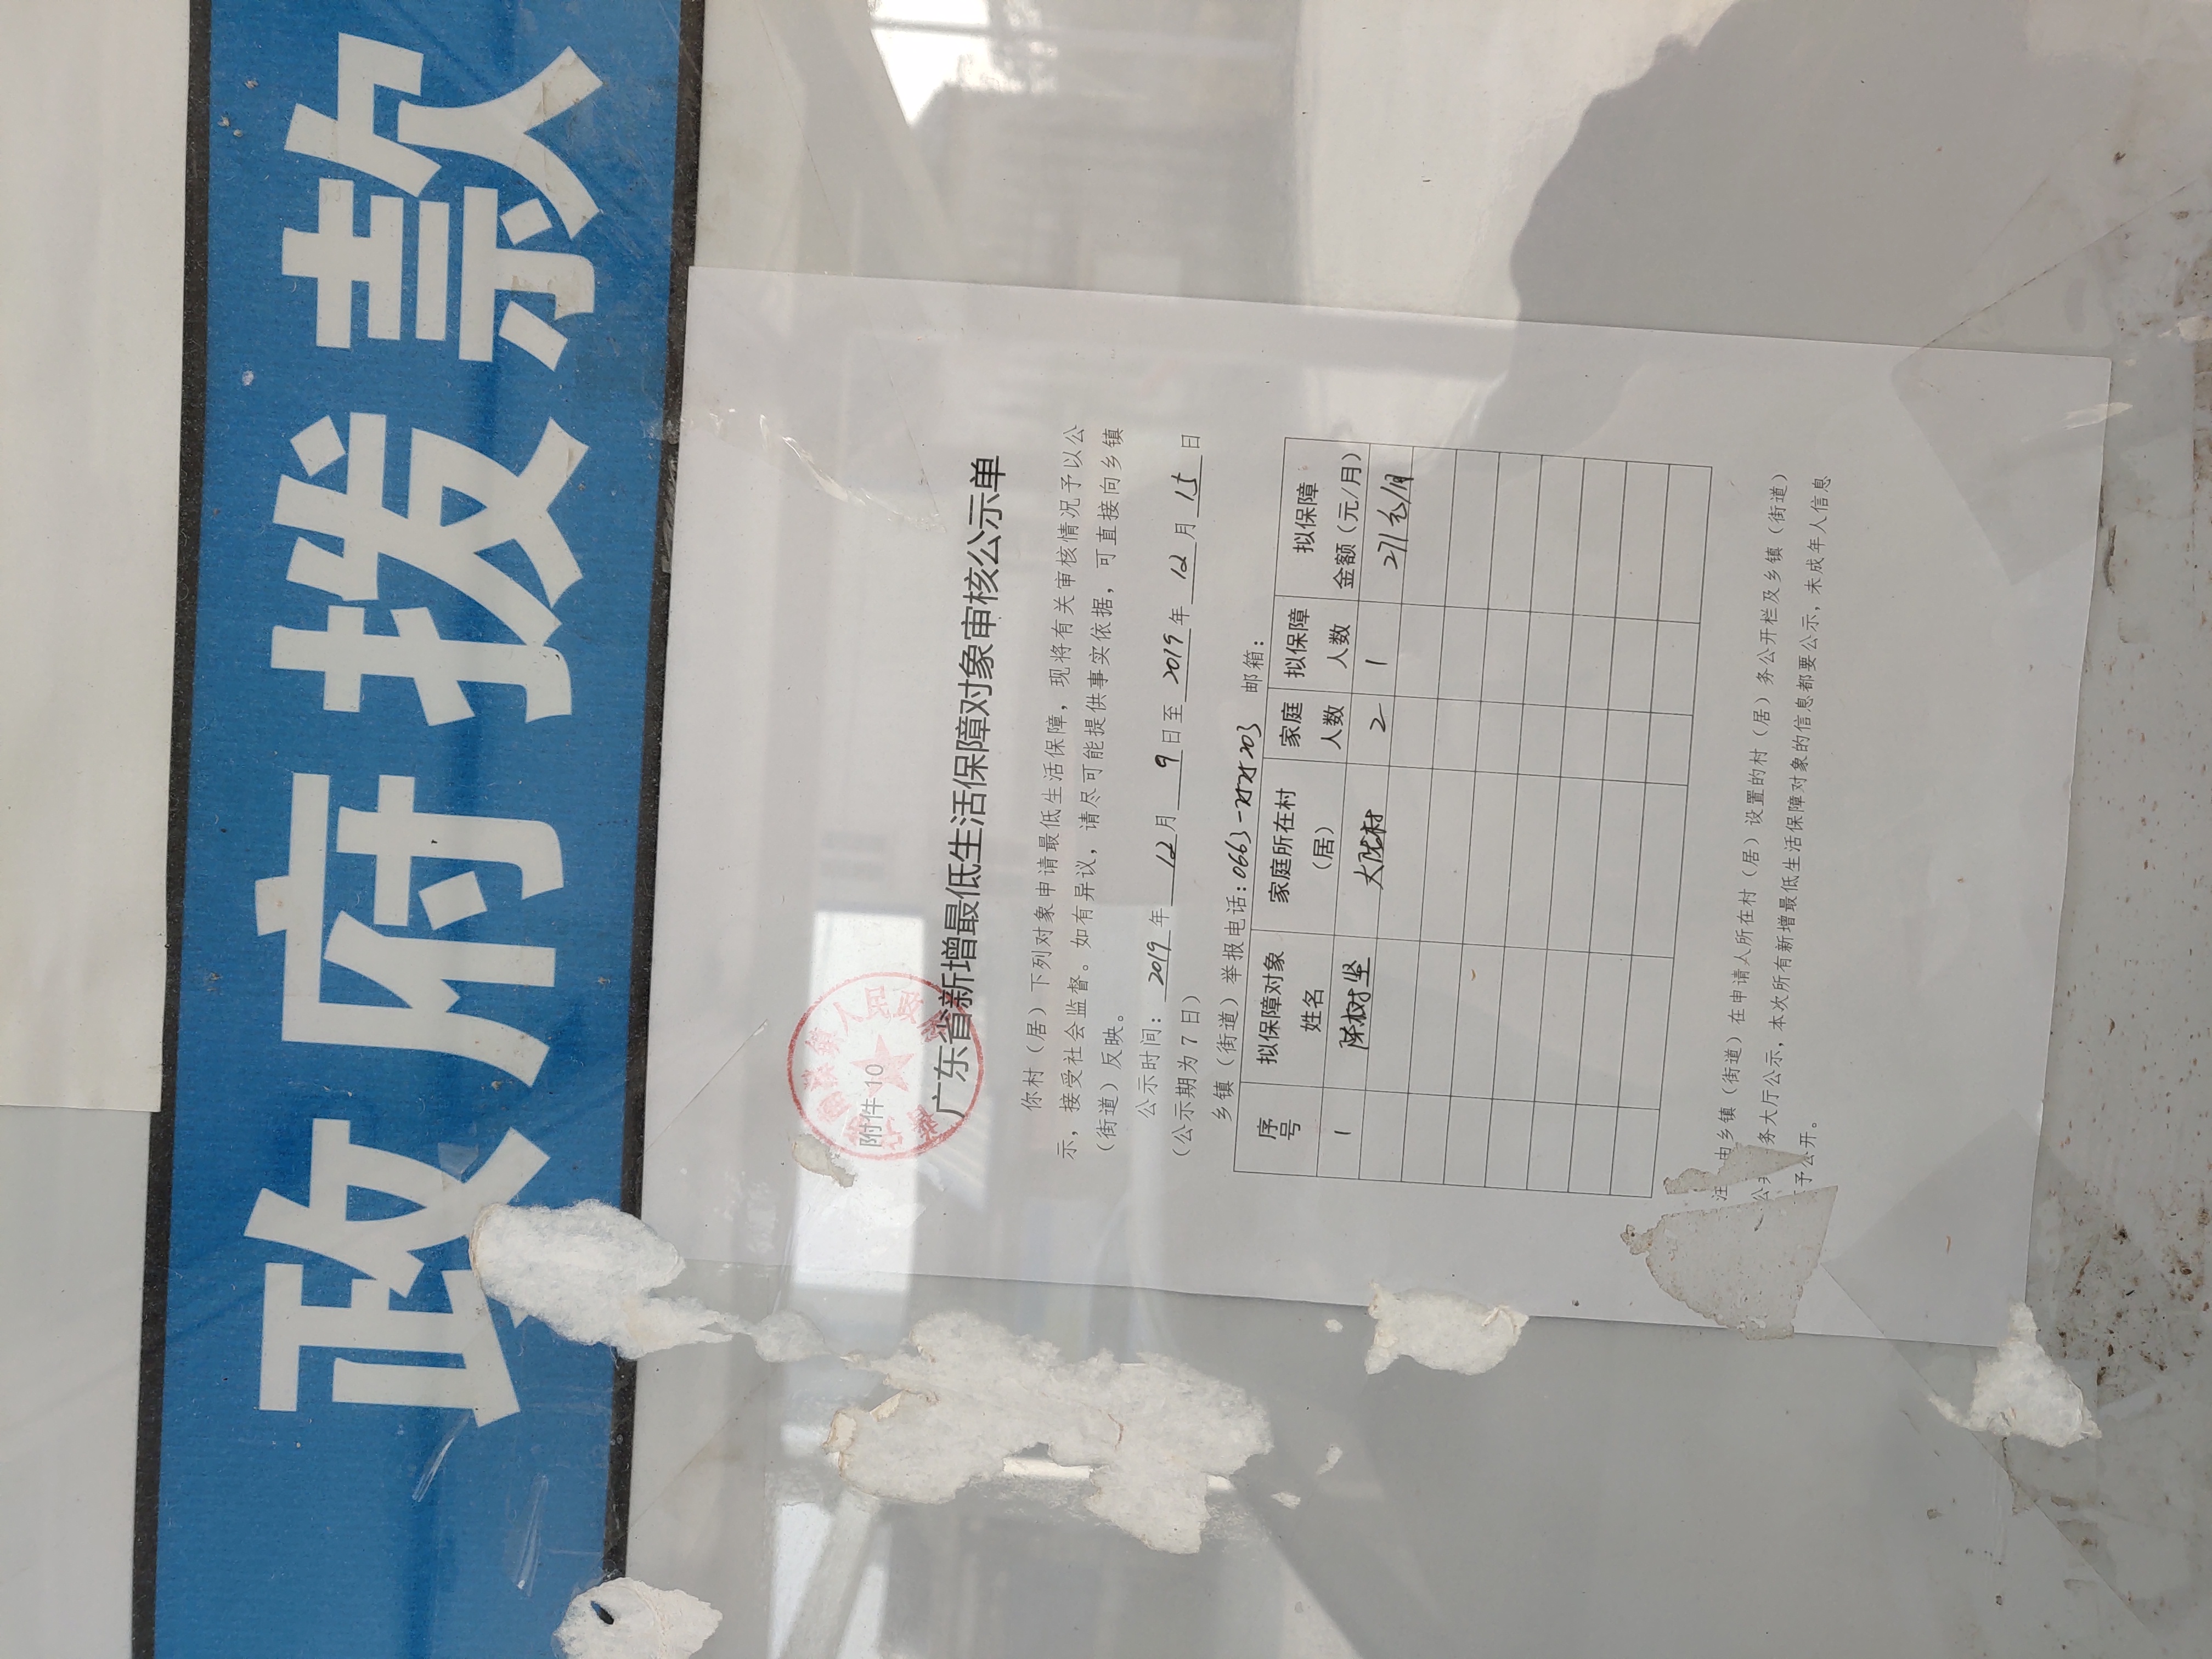 政府拨款
附件10
广东省新增最低生活保障对象审核公示单
你村（居）下列对象申请最低生活保障，现将有关审核情况予以公
示，接受社会监督。如有异议，请尽可能提供事实依据，可直接向乡镇
（街道）反映。
公示时间：2019年12月9日至2019年12月15日
（公示期为7日）
乡镇（街道）举报电话：0663- 邮箱：
序号 拟保障对象姓名 家庭所在村（居） 家庭人数 拟保障人数 拟保障金额（元/月）
1 陈树坚 2 1 271元/月
注 由乡镇（街道）在申请人所在村（居）设置的村（居）务公开栏及乡镇（街道）
务大厅公示，本次所有新增最低生活保障对象的信息都要公示，未成年人信息
予公开。